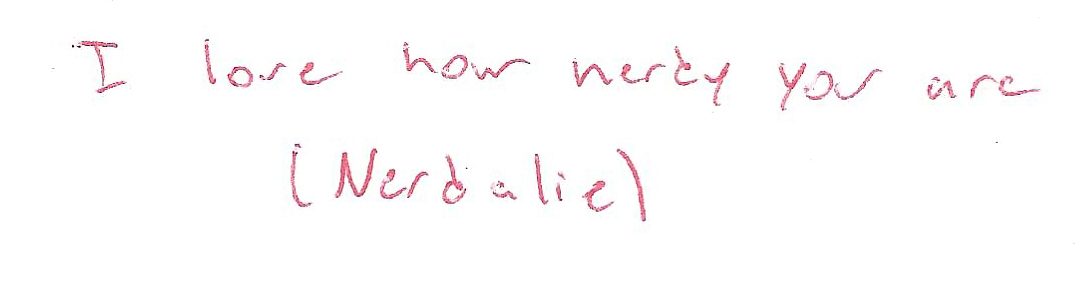 I love how nerdy you are
(Nerdalie)